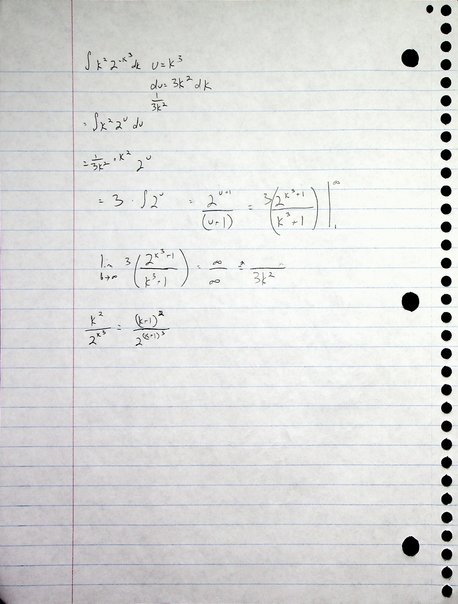 ∫ k² 2^-k³ dk u = k³
du = 3k² dk
1/3k²
= ∫ k² 2^u du
= 1/3k² · k² 2^u
= 3 · ∫ 2^u = 2^(u+1)/(u+1) = 3(2^(k³+1)/(k³+1)) |₁^∞
lim b→∞ 3(2^(k³+1)/(k³+1)) = ∞/∞ = /3k²
k²/2^k³ = (k+1)²/2^(k+1)³